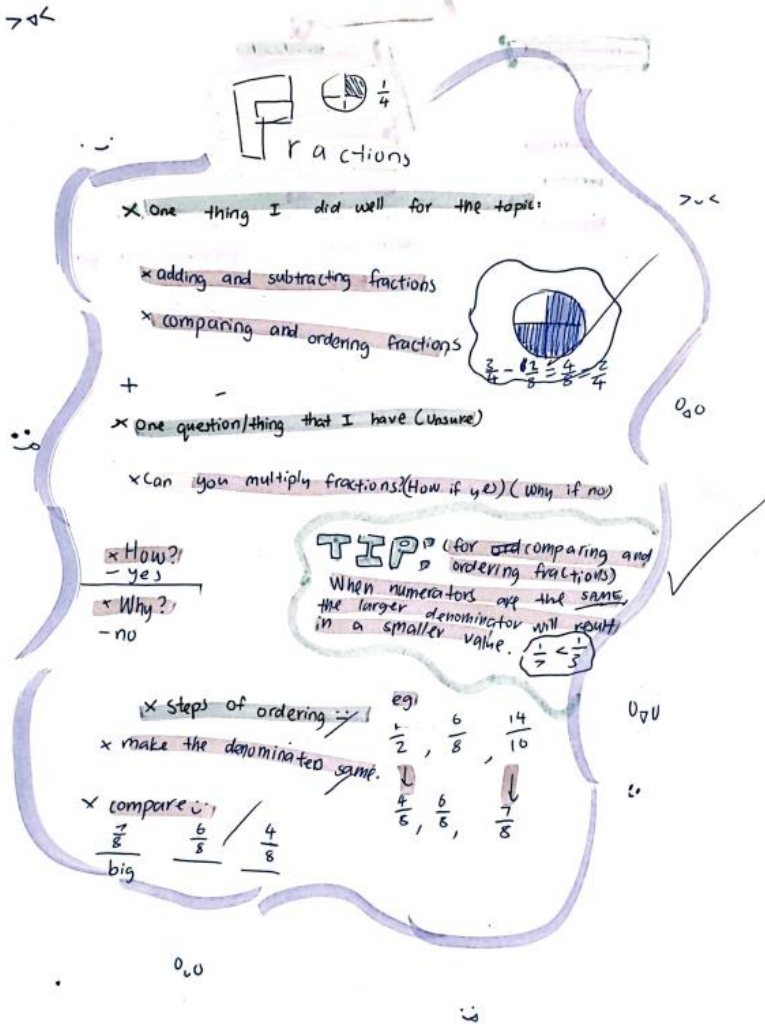 1/4
Fractions
× One thing I did well for the topic:
× adding and subtracting fractions
× comparing and ordering fractions
+ -
× One question/thing that I have (unsure)
× Can you multiply fractions? (How if yes) (Why if no)
× How?
- yes
× Why?
- no
TIP: (for comparing and
ordering fractions)
When numerators are the SAME,
the larger denominator will result
in a smaller value.
1/7 < 1/3
× steps of ordering
× make the denominated same.
eg:
1/2, 6/8, 14/10
4/8, 6/8, 7/8
× compare
7/8 6/8 4/8
big